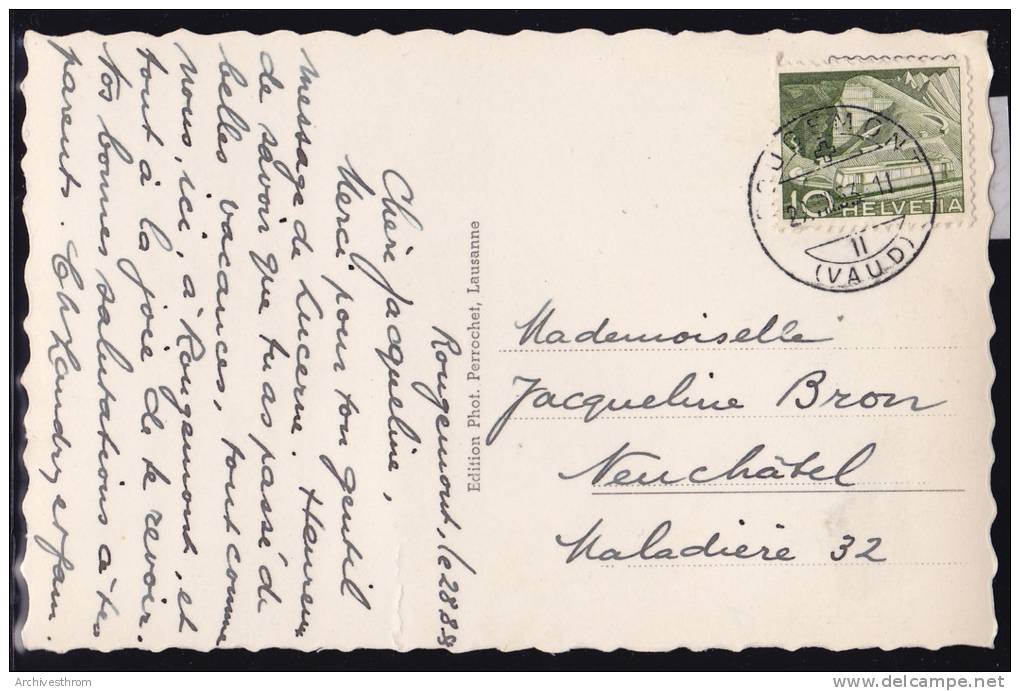 Rougemont, le 28.8.
Chère Jacqueline,
Merci pour ton gentil
message de Lucerne. Heureux
de savoir que tu as passé de
belles vacances, tout comme
nous, ici, à Rougemont, et
tout à la joie de te revoir.
Nos bonnes salutations à tes
parents. Ch Landry et fam.
Edition Phot. Perrochet, Lausanne
10 HELVETIA
ROUGEMONT
11
II
(VAUD)
Mademoiselle
Jacqueline Bron
Neuchâtel
Maladière 32
Archivesthrom
www.delcampe.net